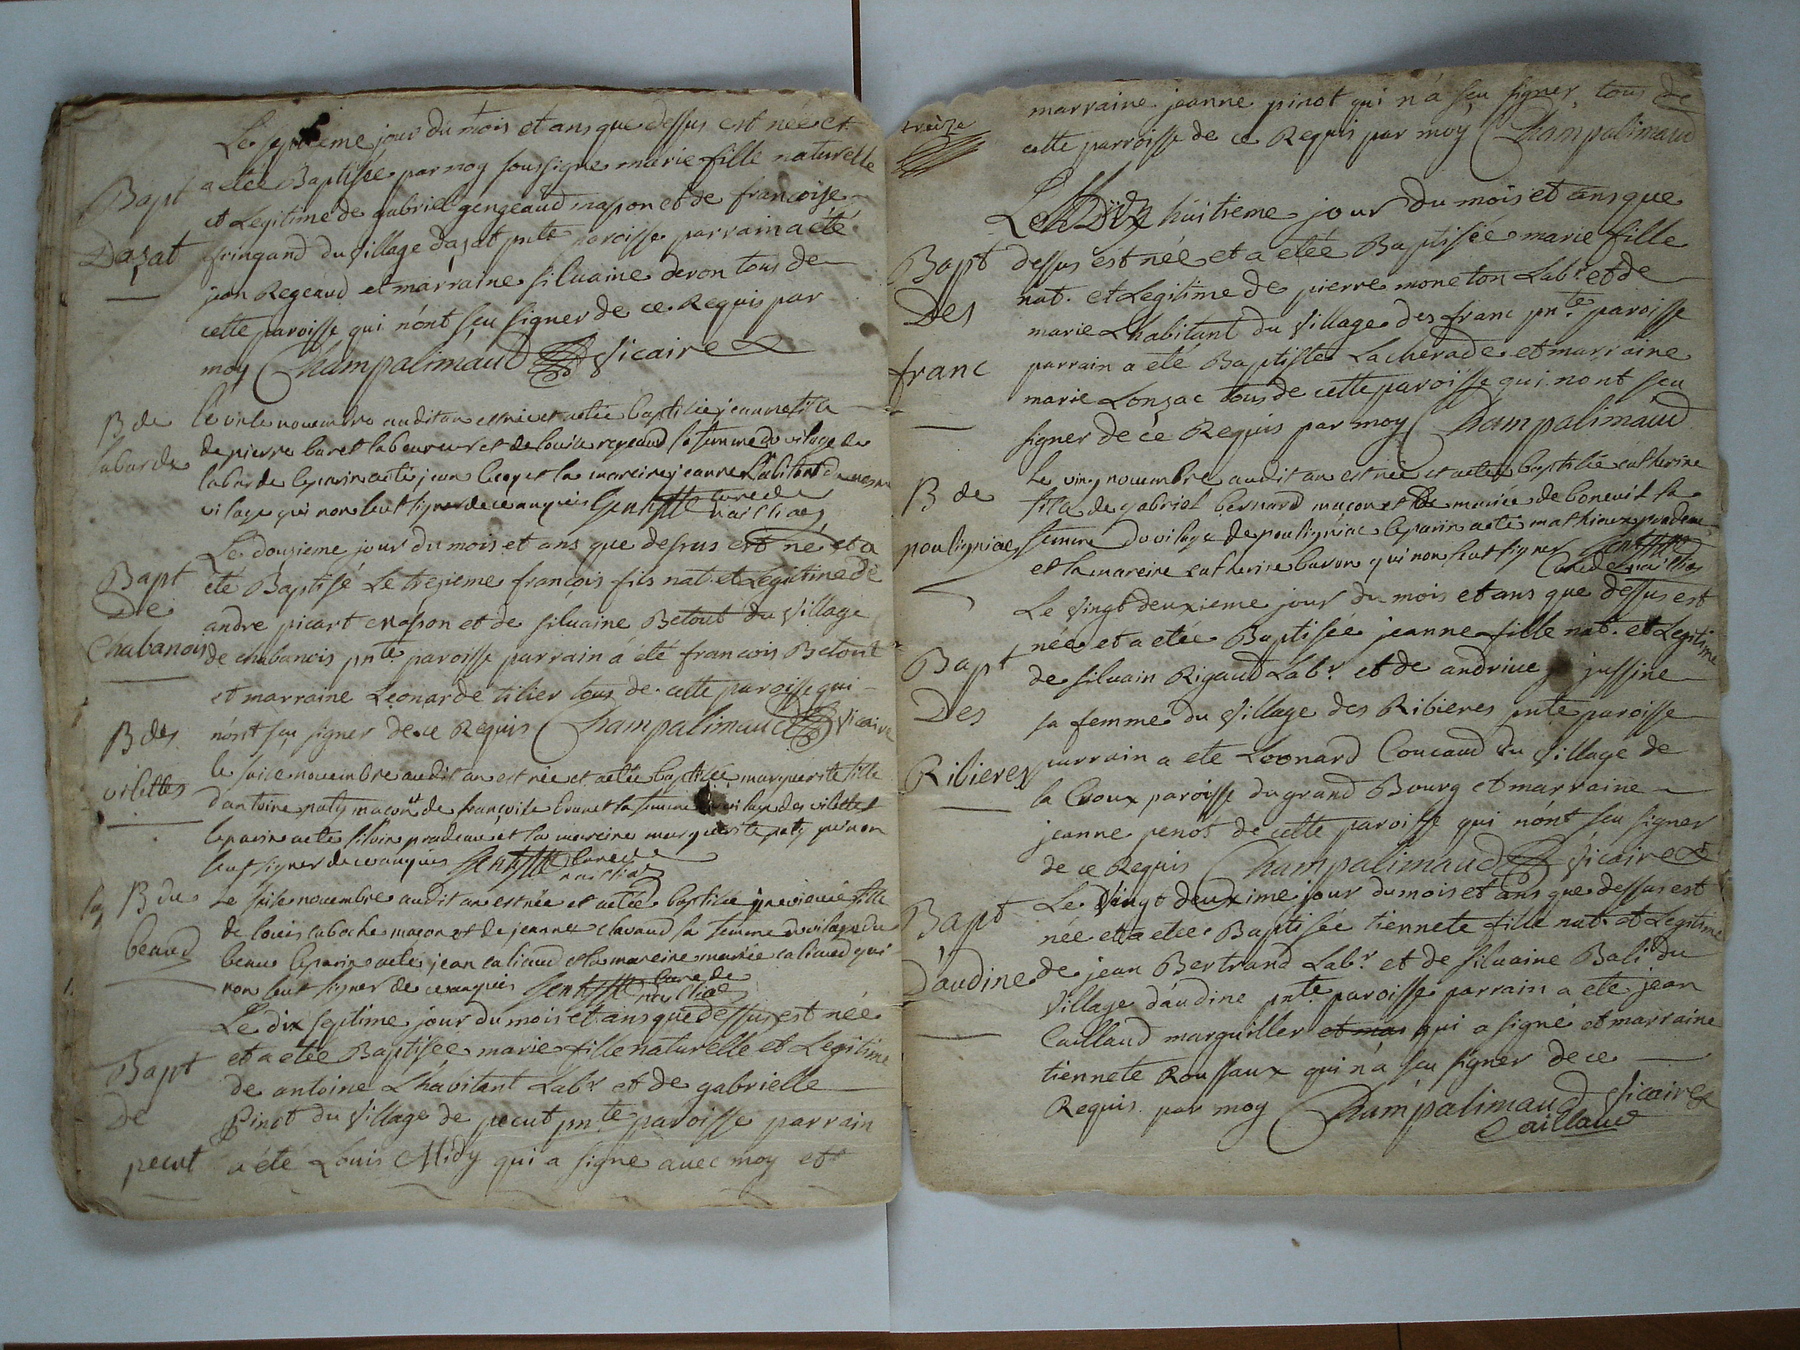 Le septieme jour du mois et ans que dessus est née et
a etée Baptisée par moy soussigné marie fille naturelle
Bapt
et Legitime de gabriel gengeaud maçon et de francoise
Dazat
fringand du village dazat pnte paroisse parrain a été
jean Regeaud et marraine silvaine deron tous de
cette paroisse qui n'ont sçu signer de ce Requis par
moy Champalimaud vicaire
B de
le novembre audit an est née et a etée baptisée jeanne fille
labarde
de pierre buret laboureur et de louise regeaud sa femme du vilage de
labarde le parin a été jean et la mareine jeanne du mesme
vilage qui non seut signer de ce anquis Gentil curé de
naillat
Le douzieme jour du mois et ans que dessus est né et a
Bapt
été Baptisé Le trezieme françois fils nat. et Legitime de
De
andre picart maçon et de silvaine Betout du village
Chabanois
de chabanois pnte paroisse parrain a été francois Betout
et marraine Leonarde tilier tous de cette paroisse qui
B des
n'ont sçu signer de ce Requis Champalimaud vicaire
vilettes
le seise novembre audit an est née et a etée baptisée marguerite fille
d'antoine paty maçon et de françoise brunet sa femme du vilage des vilettes
le parin a ete silvin pradeau et la mareine marguerite paty qui non
seut signer de ce anquis Gentil curé de
naillat
B du
Le seise novembre audit an est née et a etée baptisée fille
beaud
de louis caboche maçon et de jeanne clavaud sa femme du vilage du
beau le parin a ete jean caliaud et la mareine marie caliaud qui
non seut signer de ce anquis Gentil curé de
naillat
Le dix septime jour du mois et ans que dessus est née
et a etée Baptisée marie fille naturelle et Legitime
Bapt
de antoine Lhavitant Labr et de gabrielle
De
Pinot du village de pecut pnte paroisse parrain
pecut
a été Louis Midy qui a signé avec moy et
treize
marraine jeanne pinot qui n'a sçu signer, tous de
cette parroisse de ce Requis par moy Champalimaud
Le Dix huitieme jour du mois et ans que
Bapt
dessus est née et a etée Baptisée marie fille
Des
nat. et Legitime de pierre moneton Labr et de
franc
marie Lhabitant du village des franc pnte paroisse
parrain a été Baptiste Lacherade et marraine
marie Lonzac tous de cette paroisse qui n'ont seu
signer de ce Requis par moy Champalimaud
B de
Le vingt novembre audit an est née et a etée baptisée catherine
pouligniac
fille de gabriel bernard maçon et de marie de boneuil sa
femme du vilage de pouligniac le parin a ete mathieux pradeau
et la mareine catherine buron qui non seut signer Gentil
Curé de naillat
Le vingt deuxieme jour du mois et ans que dessus est
née et a etée Baptisée jeanne fille nat. et Legitime
Bapt
de silvain Rigaud Labr et de andrive jussine
Des
sa femme du village des Ribieres pnte paroisse
Ribieres
parrain a ete Leonard Coucaud du village de
la Croux paroisse du grand Bourg et marraine
jeanne penot de cette paroisse qui n'ont seu signer
de ce Requis Champalimaud vicaire
Le vingt deuxime jour du mois et ans que dessus est
Bapt
née et a etée Baptisée tiennete fille nat. et Legitime
D'audine
de jean Bertrand Labr et de silvaine Bali du
village d'audine pnte paroisse parrain a ete jean
Caillaud marguiller et mar qui a signé et marraine
tiennete Roussaux qui n'a sçu signer de ce
Requis par moy Champalimaud vicaire
Caillaud